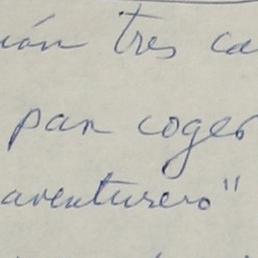 ión tres ca
pan coger
aventurero"